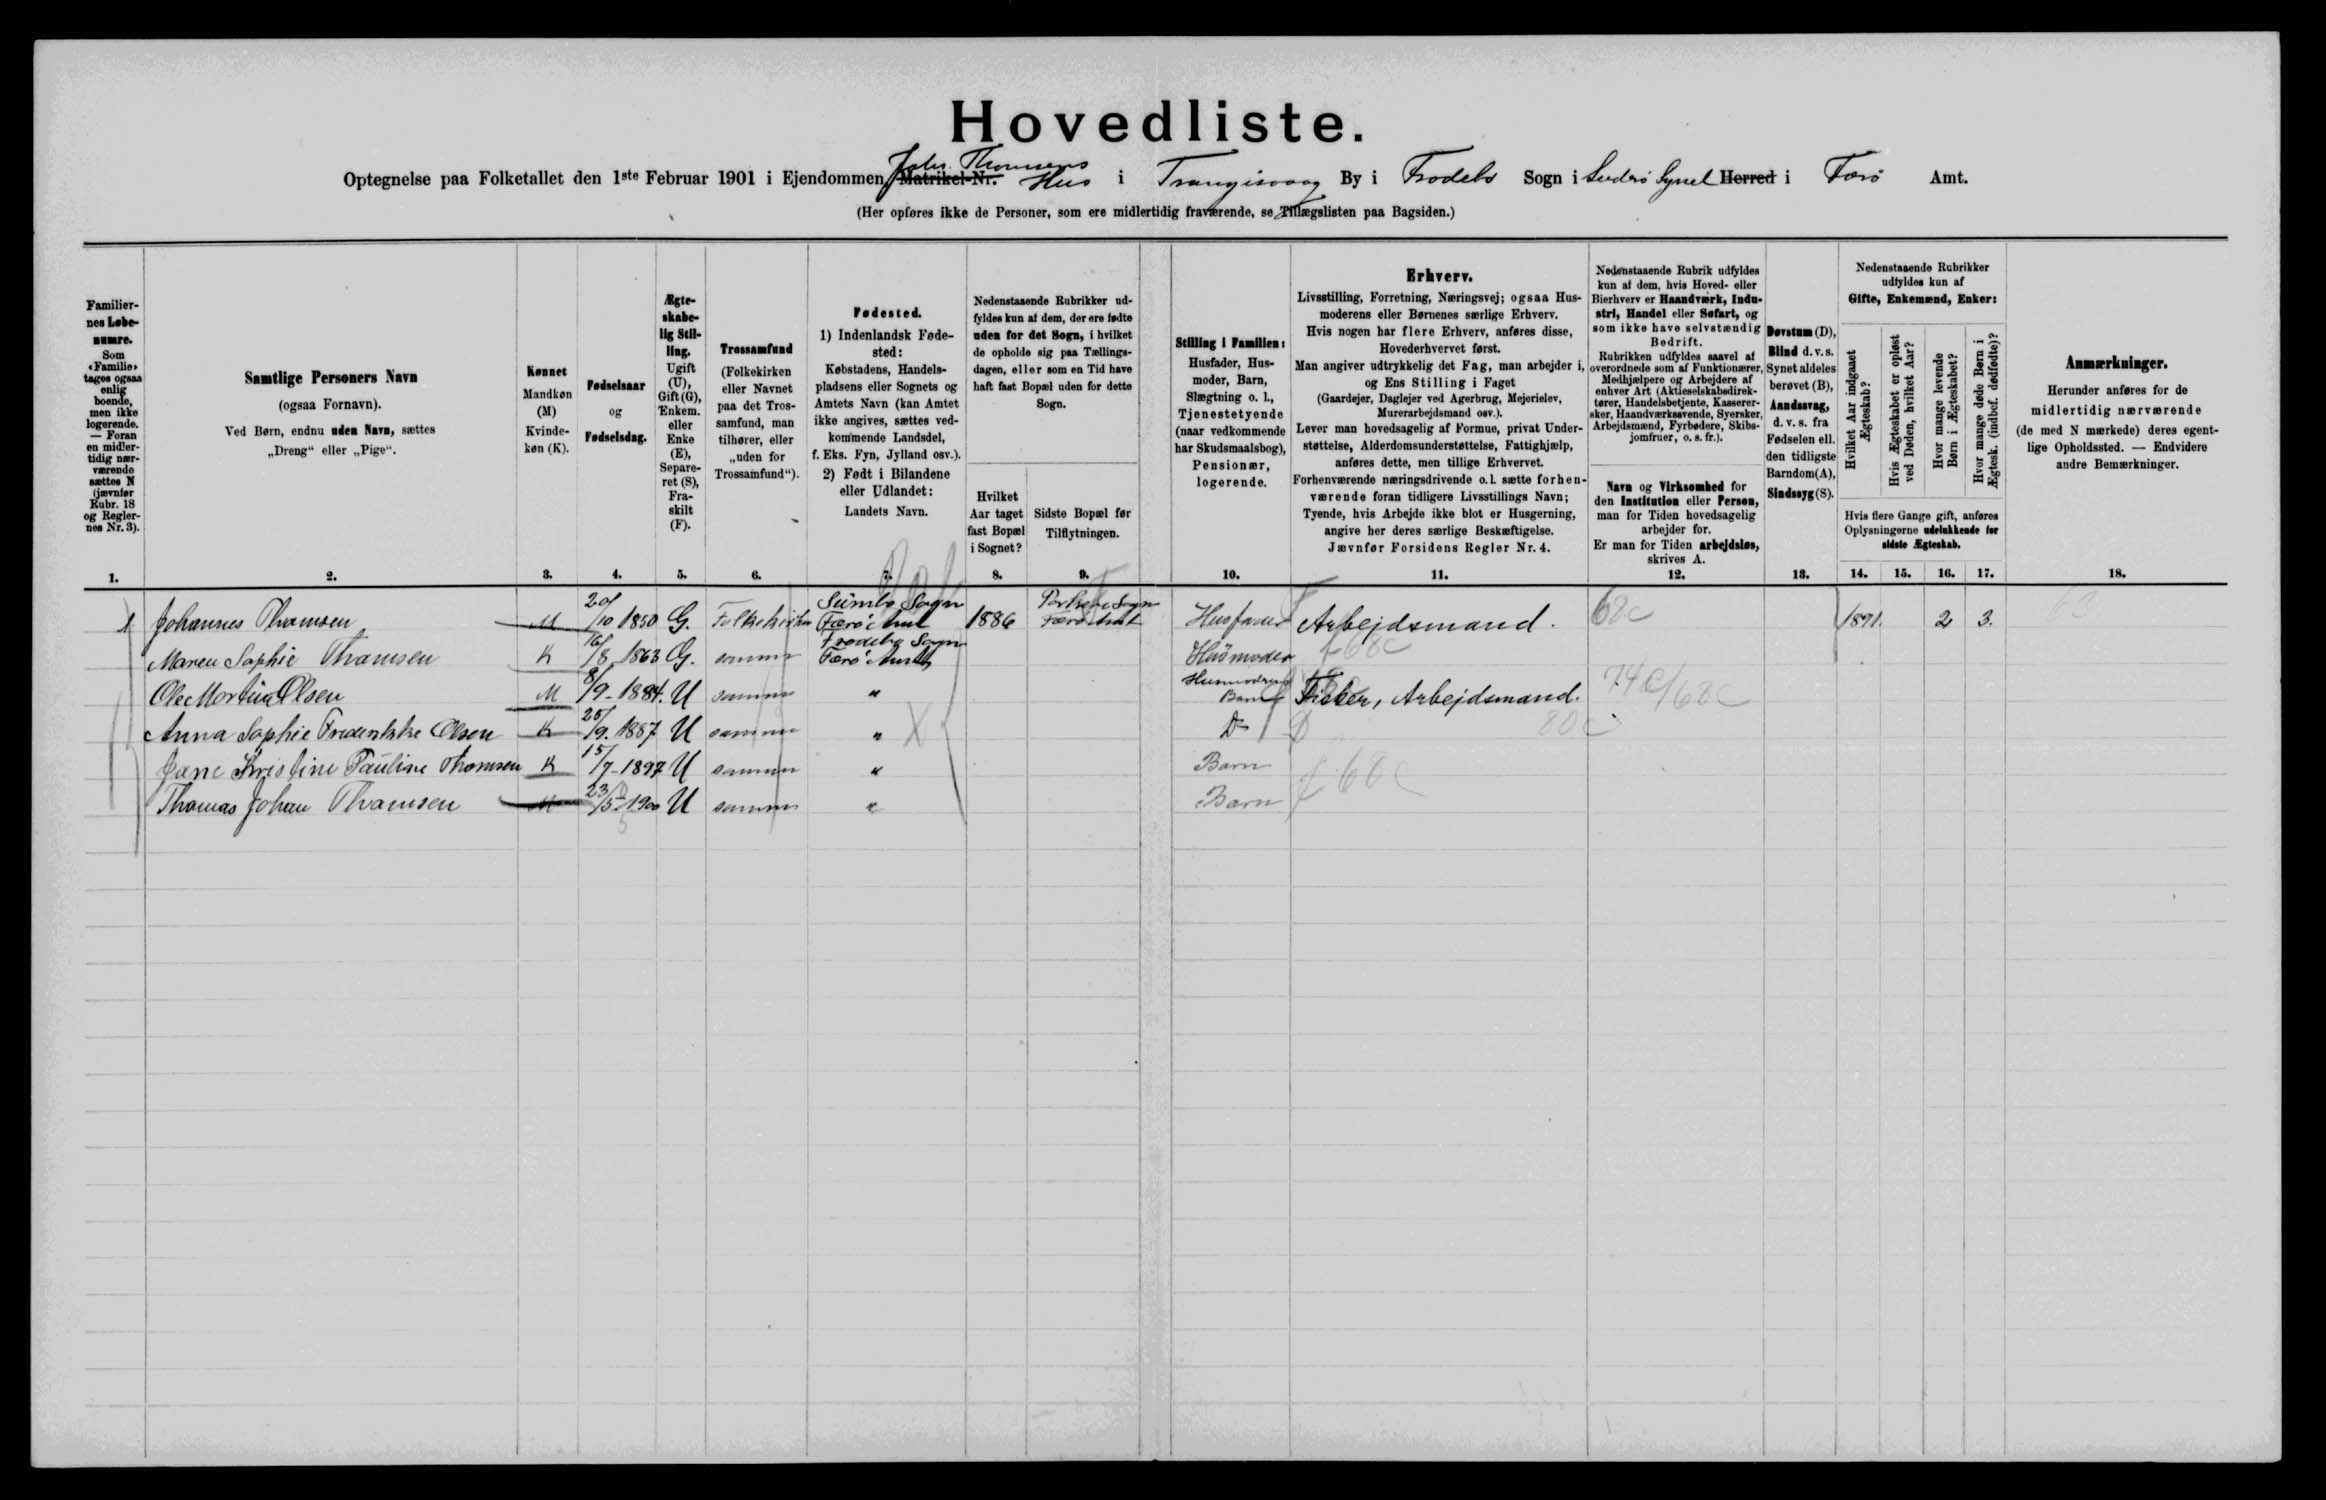 Hovedliste.
Optegnelse paa Folketallet den 1ste Februar 1901 i Ejendommen, Matrikel-Nr. Johs. Thomsens Hus i Trangisvaag By i Frodebø Sogn i Suderø Syssel Herred i Færø Amt.
(Her opføres ikke de Personer, som ere midlertidig fraværende, se Tillægslisten paa Bagsiden.)
Familiernes Løbenumre.
Som «Familie» tages ogsaa enlig boende, men ikke logerende. — Foran en midlertidig nærværende sættes N (jævnfør Rubr. 18 og Reglernes Nr. 3).
1.
Samtlige Personers Navn
(ogsaa Fornavn).
Ved Børn, endnu uden Navn, sættes „Dreng“ eller „Pige“.
2.
Kønnet
Mandkøn (M) Kvindekøn (K).
3.
Fødselsaar og Fødselsdag.
4.
Ægteskabelig Stilling.
Ugift (U), Gift (G), Enkem. eller Enke (E), Separeret (S), Fraskilt (F).
5.
Trossamfund
(Folkekirken eller Navnet paa det Trossamfund, man tilhører, eller „uden for Trossamfund“).
6.
Fødested.
1) Indenlandsk Fødested: Købstadens, Handelspladsens eller Sognets og Amtets Navn (kan Amtet ikke angives, sættes vedkommende Landsdel, f. Eks. Fyn, Jylland osv.).
2) Født i Bilandene eller Udlandet: Landets Navn.
7.
Nedenstaaende Rubrikker udfyldes kun af dem, der ere fødte uden for det Sogn, i hvilket de opholde sig paa Tællingsdagen, eller som en Tid have haft fast Bopæl uden for dette Sogn.
Hvilket Aar taget fast Bopæl i Sognet?
8.
Sidste Bopæl før Tilflytningen.
9.
Stilling i Familien:
Husfader, Husmoder, Barn, Slægtning o. l., Tjenestetyende (naar vedkommende har Skudsmaalsbog), Pensionær, logerende.
10.
Erhverv.
Livsstilling, Forretning, Næringsvej; ogsaa Husmoderens eller Børnenes særlige Erhverv.
Hvis nogen har flere Erhverv, anføres disse, Hovederhvervet først.
Man angiver udtrykkelig det Fag, man arbejder i, og Ens Stilling i Faget
(Gaardejer, Daglejer ved Agerbrug, Mejerielev, Murerarbejdsmand osv.).
Lever man hovedsagelig af Formue, privat Understøttelse, Alderdomsunderstøttelse, Fattighjælp, anføres dette, men tillige Erhvervet.
Forhenværende næringsdrivende o. l. sætte forhenværende foran tidligere Livsstillings Navn;
Tyende, hvis Arbejde ikke blot er Husgerning, angive her deres særlige Beskæftigelse.
Jævnfør Forsidens Regler Nr. 4.
11.
Nedenstaaende Rubrik udfyldes kun af dem, hvis Hoved- eller Bierhverv er Haandværk, Industri, Handel eller Søfart, og som ikke have selvstændig Bedrift.
Rubrikken udfyldes saavel af overordnede som af Funktionærer, Medhjælpere og Arbejdere af enhver Art (Aktieselskabsdirektører, Handelsbetjente, Kasserersker, Haandværkssvende, Syersker, Arbejdsmænd, Fyrbødere, Skibsjomfruer, o. s. fr.).
Navn og Virksomhed for den Institution eller Person, man for Tiden hovedsagelig arbejder for.
Er man for Tiden arbejdsløs, skrives A.
12.
Døvstum (D), Blind d. v. s. Synet aldeles berøvet (B), Aandssvag, d. v. s. fra Fødselen ell. den tidligste Barndom (A), Sindssyg (S).
13.
Nedenstaaende Rubrikker udfyldes kun af Gifte, Enkemænd, Enker:
Hvilket Aar indgaaet Ægteskab?
Hvis Ægteskabet er opløst ved Døden, hvilket Aar?
Hvor mange levende Børn i Ægteskabet?
Hvor mange døde Børn i Ægtesk. (indbef. dødfødte)?
Hvis flere Gange gift, anføres Oplysningerne udelukkende for sidste Ægteskab.
14. 15. 16. 17.
Anmærkninger.
Herunder anføres for de midlertidig nærværende (de med N mærkede) deres egentlige Opholdssted. — Endvidere andre Bemærkninger.
18.
1 Johannes Thomsen M 20/10 1850 G. Folkekirken Sumbø Sogn Færø Amt 1886 Porkere Sogn Færø Amt Husfader Arbejdsmand. 68c 1891. 2 3.
Maren Sophie Thomsen K 16/8 1863 G. samme Frodebø Sogn Færø Amt Husmoder f 68c
Ole Morten Olsen M 8/9-1884. U samme " Husmoders Barn Fisker, Arbejdsmand. 74c/68c
Anna Sophie Frederikke Olsen K 25/9. 1887 U samme " Do 80c
Jane Kristine Pauline Thomsen K 15/7-1897 U samme " Barn f 68c
Thomas Johan Thomsen M 23/5-1900 U samme " Barn